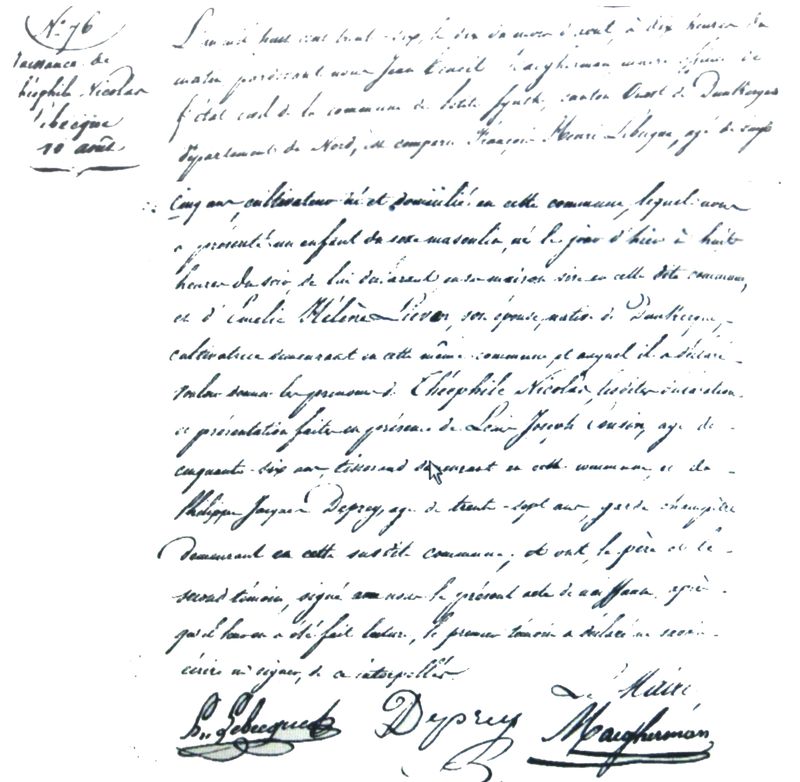 N° 76
Naissance de
Théophile Nicolas
Lebecque
10 août
L'an mil huit cent trent-six, le dix du mois d'août, à dix heures du
matin pardevant nous Jean Maegherman maire officier de
l'état civil de la commune de Petite Synthe, canton Ouest de Dunkerque
département du Nord, est comparu François Henri Lebecque, agé de
cinq ans, cultivateur né et domicilié en cette commune, lequel nous
a présenté un enfant du sexe masculin, né le jour d'hier à huit
heures du soir, de lui déclarant en sa maison sise en cette dite commune,
et d'Emelie Hélène Lievens, son épouse, native de Dunkerque,
cultivatrice demeurant en cette même commune, et auquel il a déclaré
vouloir donner les prenoms de Théophile Nicolas, lesdites déclaration
et présentation faites en présence de Louis Joseph Cousin, agé de
cinquante-six ans, tisserand demeurant en cette commune, et de
Philippe Jacques Deprey, agé de trente-sept ans, garde champêtre
demeurant en cette susdite commune; et ont, le père et le
second témoin, signé avec nous le présent acte de naissance, après
qu'il leur en a été fait lecture, le premier témoin a déclaré ne savoir
écrire ni signer, de ce interpellé.
Le Maire
H. Lebecque Deprey Maegherman